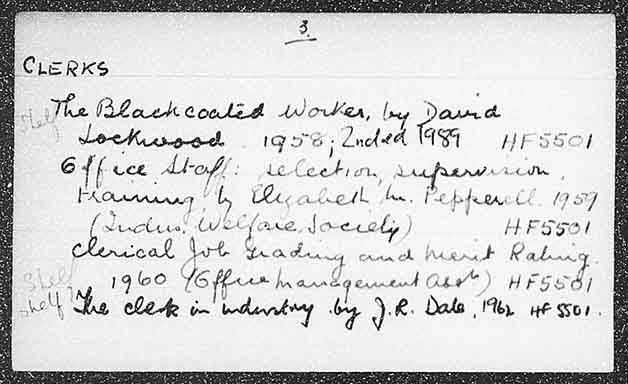 3.
CLERKS
Shelf The Blackcoated Worker, by David
Lockwood 1958; 2nd ed 1989 HF5501
Office Staff: selection, supervision,
training by Elizabeth M. Pepperell. 1959
(Indus. Welfare Society) HF5501
Clerical Job Grading and Merit Rating.
Shelf 1960 (Office Management Assn) HF5501
Shelf The clerk in industry by J.R. Dale, 1962 HF 5501.